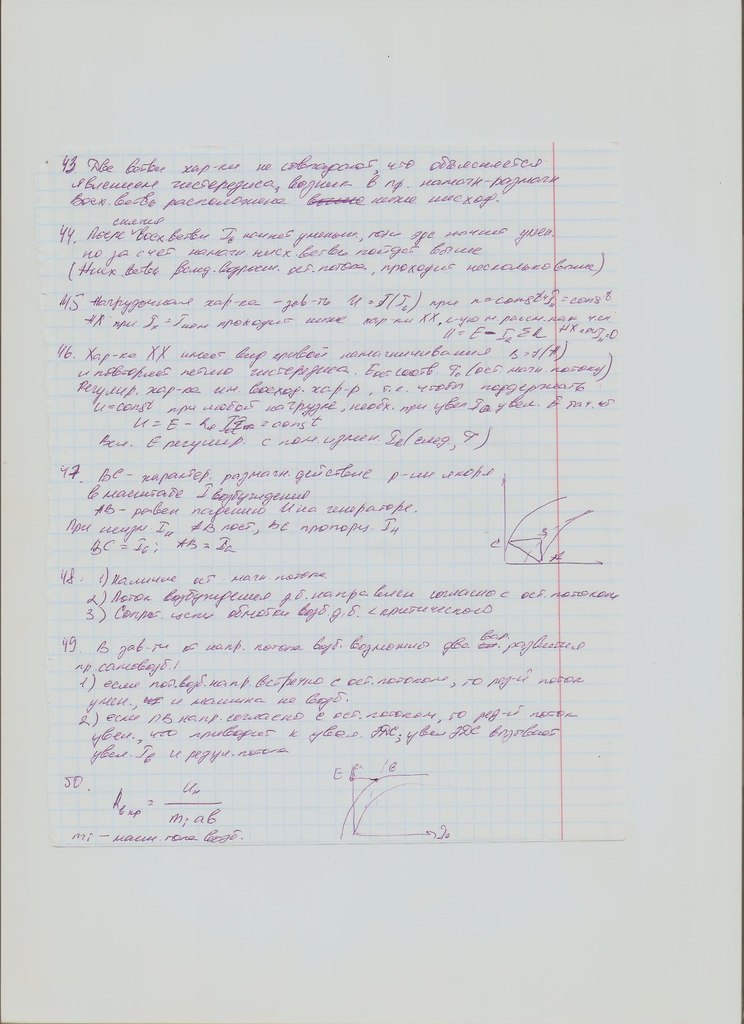 43 Две ветви хар-ки не совпадают, что объясняется
явлением гистерезиса, возника в пр. намагн-размагн
Восх. ветвь расположена ниже нисход.
снятия
44. После восх ветви Iв начнет уменьш, при эдс начнет умен.
но за счет намагн нисх ветви пойдет выше
(Нисх ветвь вслед. ост. потока, проходит несколько выше)
45 Нагрузочная хар-ка - зав-ть U = f(Iв) при n = const, Iн = const
НХ при Iн = Iном проходит ниже хар-ки XX, т.к
U = E - Iа ΣR НХ при Iн=0
46. Хар-ка XX имеет вид кривой намагничивания B = f(H)
и повторяет петлю гистерезиса. Eост соотв. (ост магн. потоку)
Регулир. хар-ка им. восход. хар-р, т.е. чтобы поддержать
U = const при любой нагрузке, необх. при увел Iа увел. E так. чт
U = E - Rа Iа = const
Вел. E регулир. с пом измен. Iв (след, Ф)
47. BC - характер. размагн. действие р-ии якоря
в масштабе I возбуждения
AB - равен падению U на генераторе.
При измен Iн AB пост, BC пропорц. Iн
BC = Iв; AB = Iа
C B A
48. 1) Наличие ост. магн. потока
2) Поток возбуждения д.б. направлен согласно с ост. потоком
3) Сопрот. цепи обмотки возб д.б. < критического
49. В зав-ти от напр. потока возб. возможит два вар. развития
пр. самовозб.:
1) если пот. возб. напр. встречно с ост. потоком, то рез-й поток
умен., и машина не возб.
2) если ПВ напр. согласно с ост. потоком, то рез-й поток
увел., что приводит к увел. ЭДС; увел ЭДС
увел. Iв и резул. потока
50.
Rв кр = Uн / mi ab
E a b
Iв
mi - масш. тока возб.